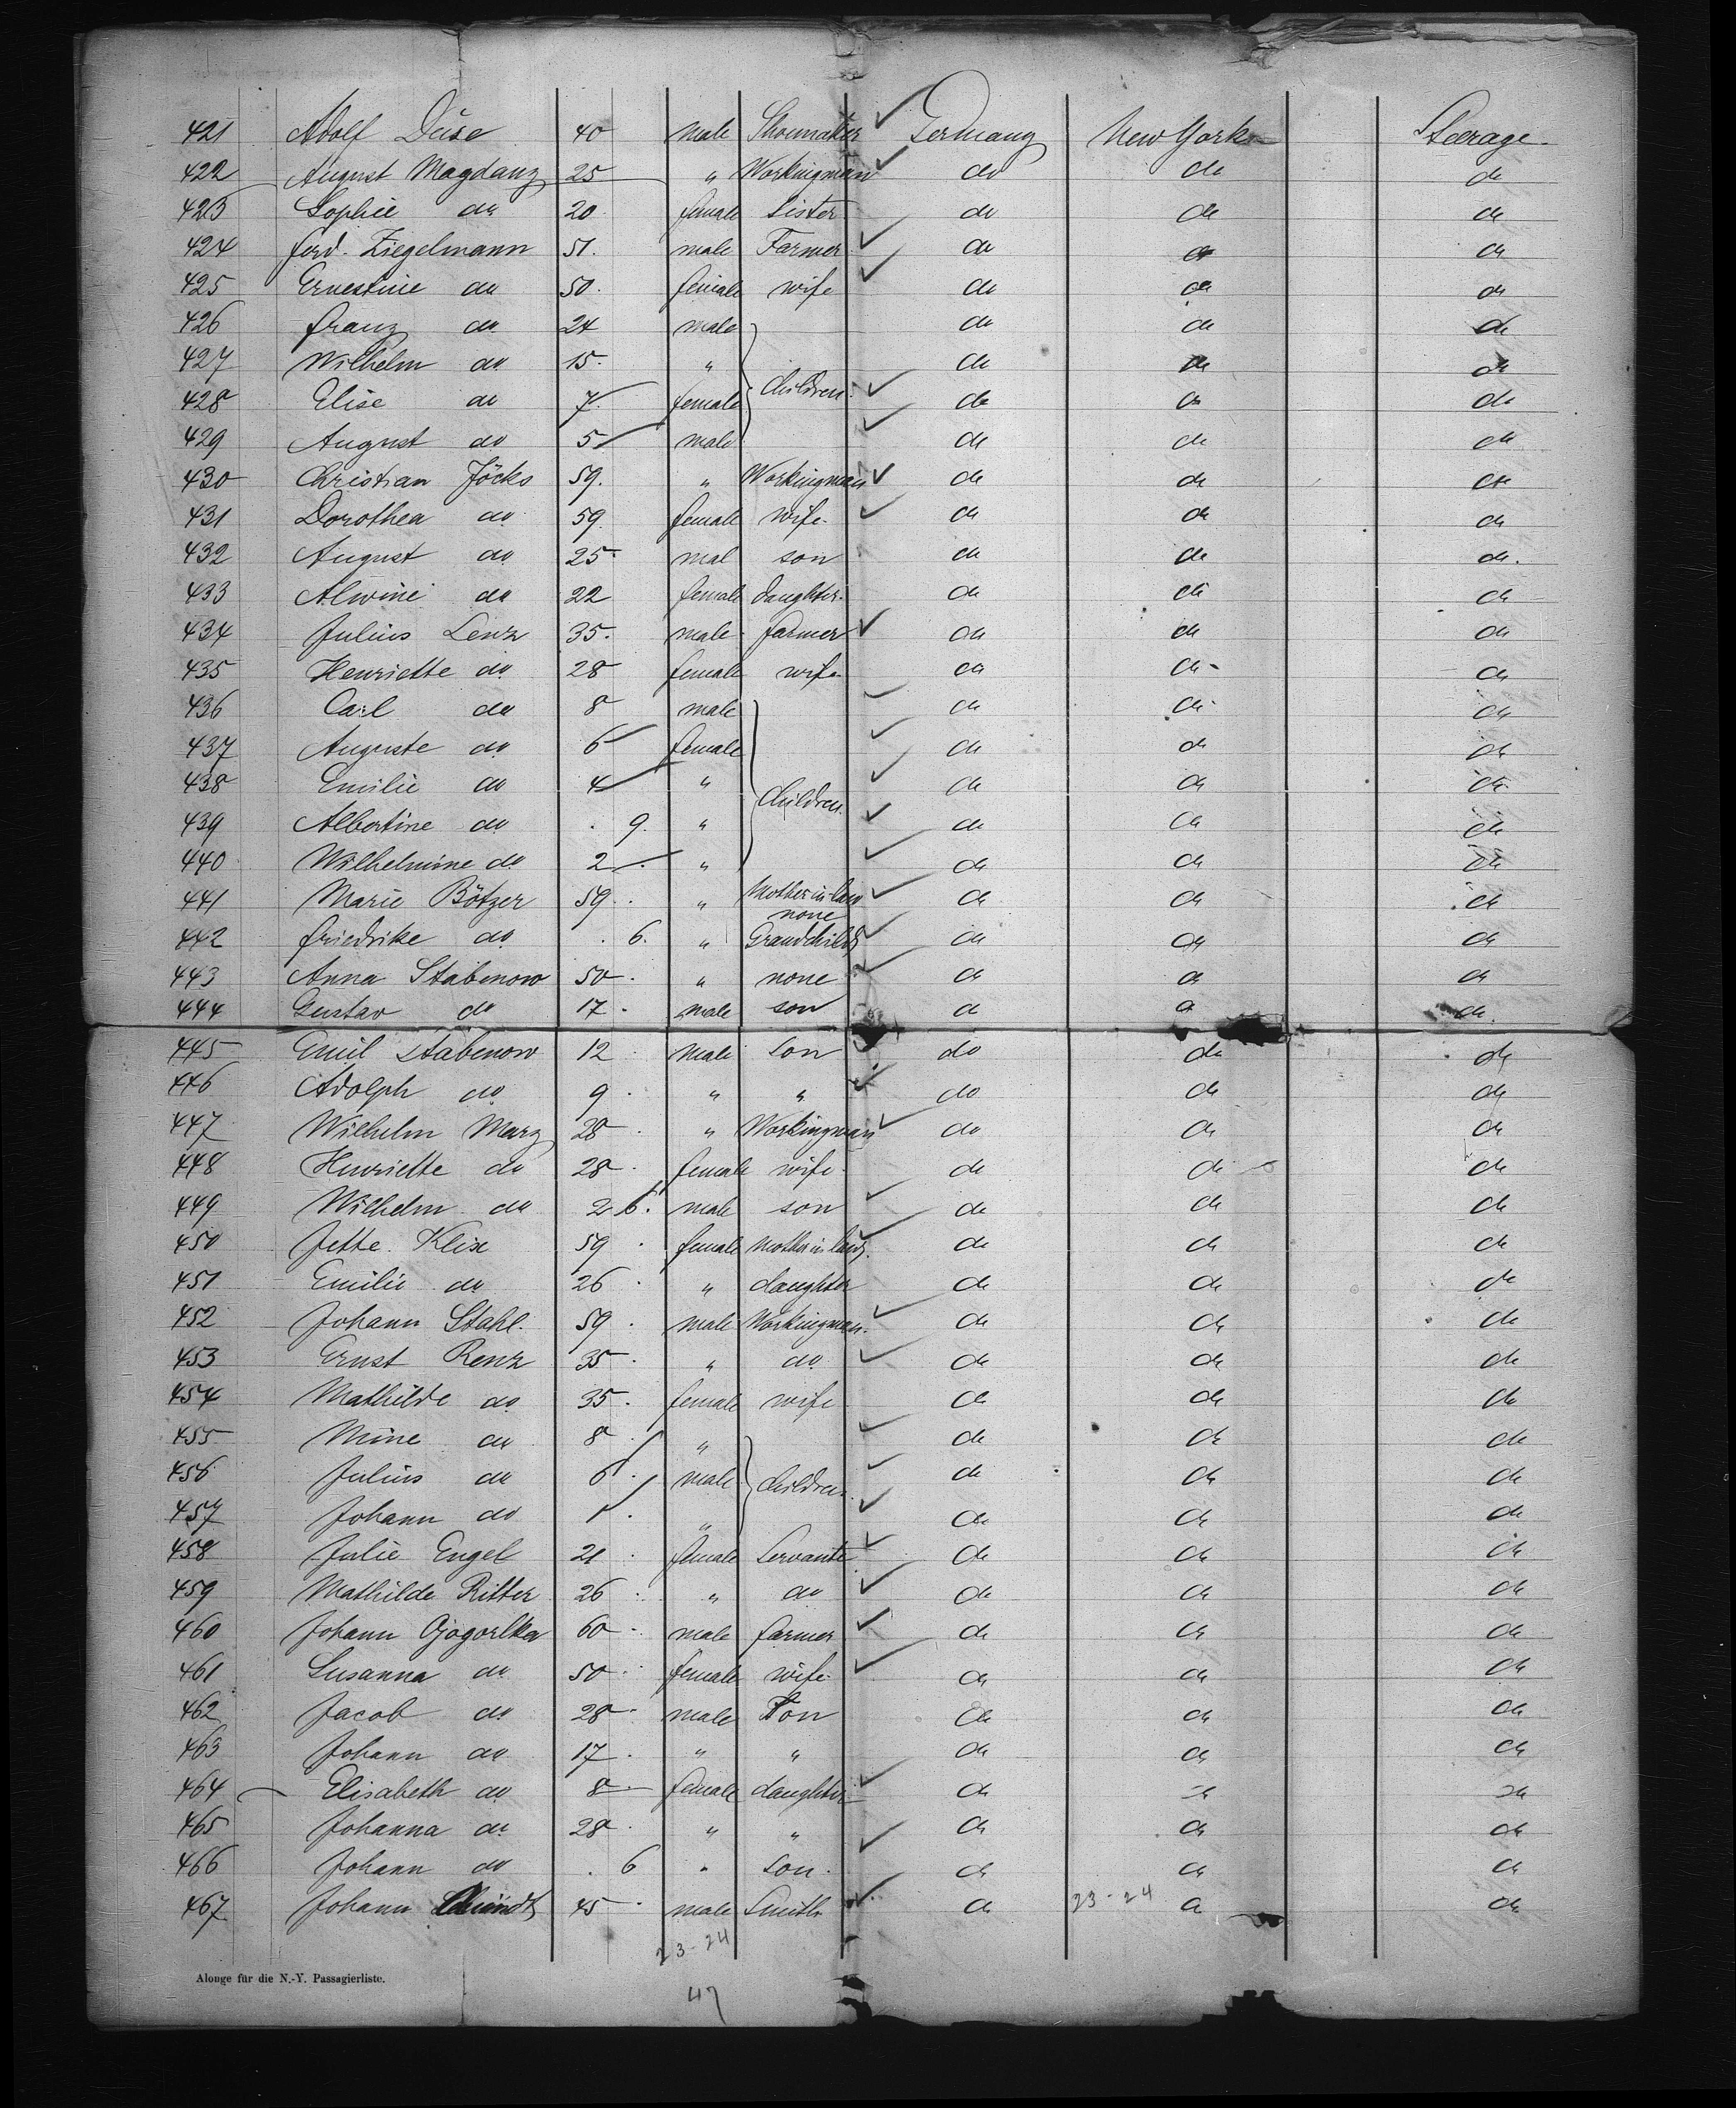 421 Adolf Duse 40 male Shoemaker Germany New York Steerage.
422 August Magdanz 25 " Workingman do do do
423 Sophie do 20 female Sister do do do
424 Ferd. Ziegelmann 51. male Farmer do do do
425 Ernestine do 50. female wife do do do
426 Franz do 24 male do do do
427 Wilhelm do 15. " do do do
428 Elise do 7. female Children. do do do
429 August do 5 male do do do
430 Christian Jöcks 59. " Workingman do do do
431 Dorothea do 59. female wife. do do do
432 August do 25. mal son do do do.
433 Alwine do 22 female daughter. do do do
434 Julius Lenz 35. male farmer do do do
435 Henriette do 28 female wife do do do
436 Carl do 8 male do do do
437 Auguste do 6 female do do do
438 Emilie do 4 " do do do
439 Albertine do . 9. " Children. do do do
440 Wilhelmine do 2 . " do do do
441 Marie Bötzer 59. . " Mother in law none do do do
442 Friedrike do . 6. " Grandchild do do do
443 Anna Stabenow 50 . " none do do do
444 Gustav do 17 . male son do do do.
445 Emil Stabenow 12 . male son do do do
446 Adolph do 9 . " " do do do
447 Wilhelm Marz 28 . " Workingman do do do
448 Henriette do 28 . female wife. do do do
449 Wilhelm do 2 6. male son do do do
450 Jette. Klix 59 . female Mother in law. do do do
451 Emilie do 26 . " daughter do do do
452 Johann Stahl. 59 . male Workingman. do do do
453 Ernst Renz 35 . " do do do do
454 Mathilde do 35 . female wife do do do
455 Mine do 8 . " do do do
456 Julius do 6 . male Children. do do do
457 Johann do 1 . " do do do
458 Julie Engel 21 . female Servante do do do
459 Mathilde Ritter 26 . " do do do do
460 Johann 60 . male farmer do do do
461 Susanna do 50 . female wife. do do do
462 Jacob do 28 . male Son do do do
463 Johann do 17 . " " do do do
464 Elisabeth do 8 . female daughter do do do
465 Johanna do 28 . " " do do do
466 Johann do . 6 " Son. do do do
467 Johann 45 . male Smith do do do
23-24
23-24
Alonge für die N.-Y. Passagierliste.
47